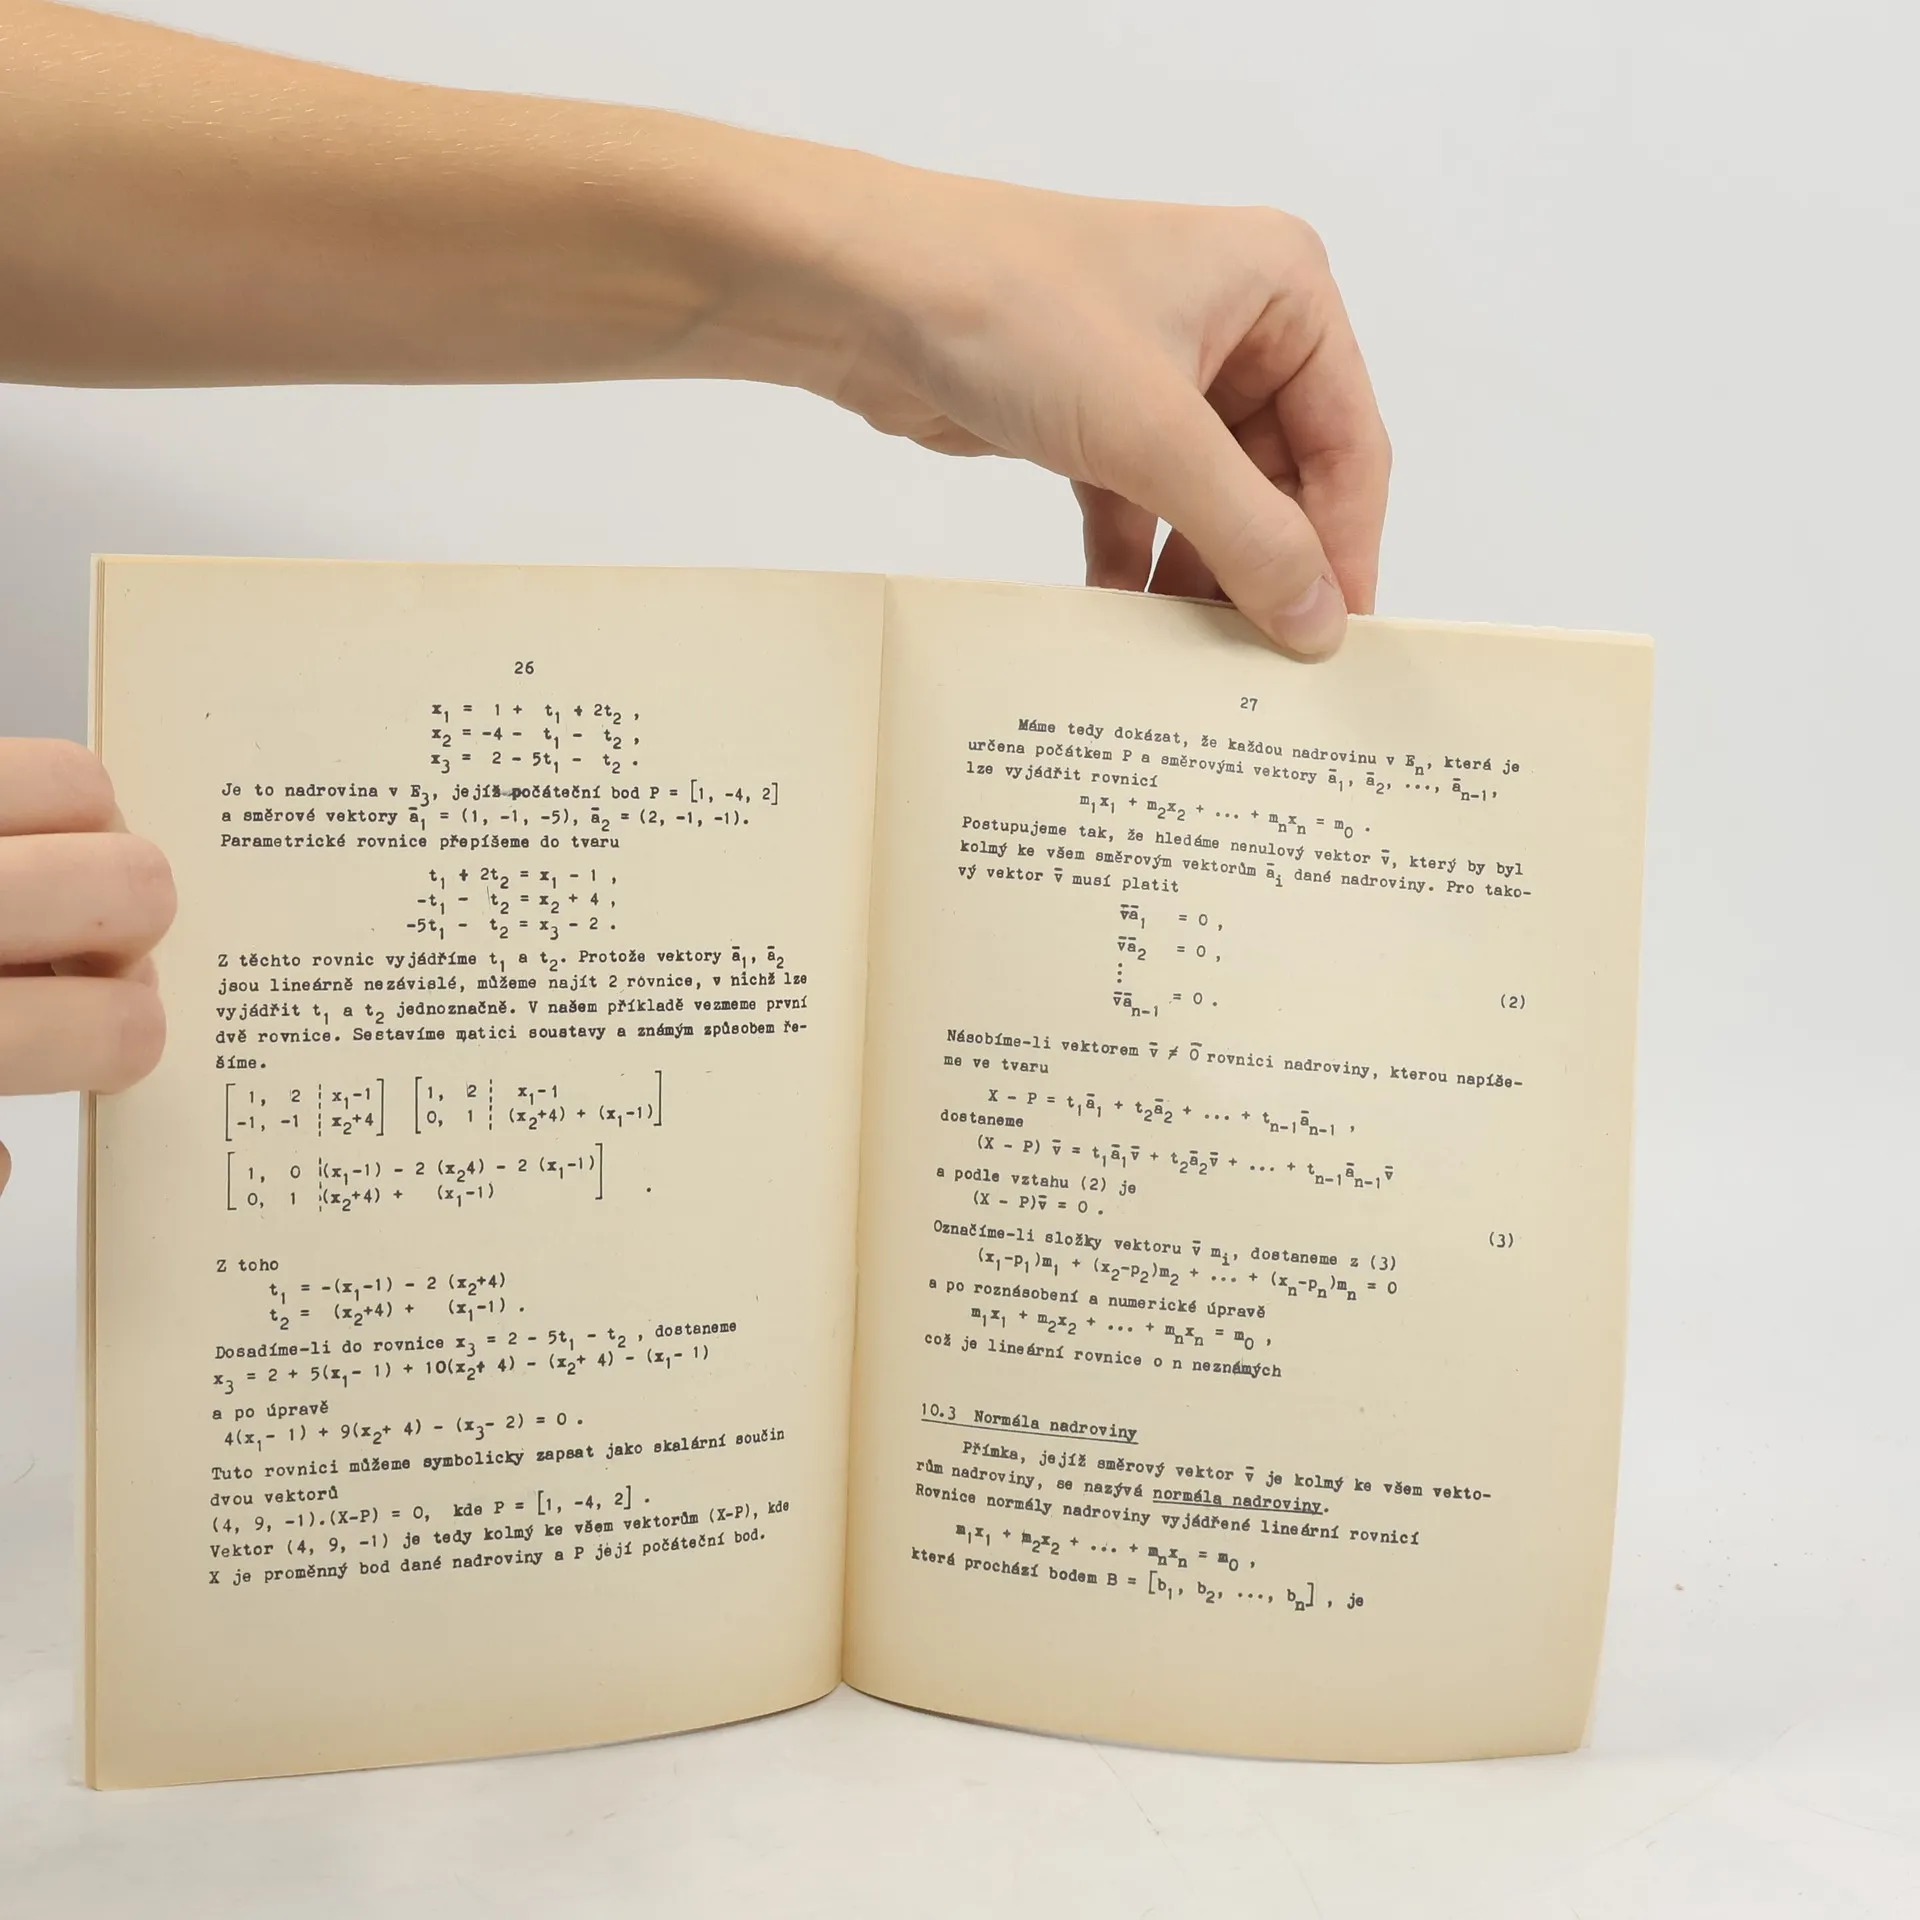 26
x₁ = 1 + t₁ + 2t₂ ,
x₂ = -4 - t₁ - t₂ ,
x₃ = 2 - 5t₁ - t₂ .
Je to nadrovina v E₃, jejíž počáteční bod P = [1, -4, 2]
a směrové vektory a̅₁ = (1, -1, -5), a̅₂ = (2, -1, -1).
Parametrické rovnice přepíšeme do tvaru
t₁ + 2t₂ = x₁ - 1 ,
-t₁ - t₂ = x₂ + 4 ,
-5t₁ - t₂ = x₃ - 2 .
Z těchto rovnic vyjádříme t₁ a t₂. Protože vektory a̅₁, a̅₂
jsou lineárně nezávislé, můžeme najít 2 rovnice, v nichž lze
vyjádřit t₁ a t₂ jednoznačně. V našem příkladě vezmeme první
dvě rovnice. Sestavíme matici soustavy a známým způsobem ře-
šíme.
[ 1, 2 ¦ x₁-1 ] [ 1, 2 ¦ x₁-1 ]
[ -1, -1 ¦ x₂+4 ] [ 0, 1 ¦ (x₂+4) + (x₁-1) ]
[ 1, 0 ¦ (x₁-1) - 2 (x₂4) - 2 (x₁-1) ]
[ 0, 1 ¦ (x₂+4) + (x₁-1) ] .
Z toho
t₁ = -(x₁-1) - 2 (x₂+4)
t₂ = (x₂+4) + (x₁-1) .
Dosadíme-li do rovnice x₃ = 2 - 5t₁ - t₂ , dostaneme
x₃ = 2 + 5(x₁- 1) + 10(x₂+ 4) - (x₂+ 4) - (x₁- 1)
a po úpravě
4(x₁- 1) + 9(x₂+ 4) - (x₃- 2) = 0 .
Tuto rovnici můžeme symbolicky zapsat jako skalární součin
dvou vektorů
(4, 9, -1).(X-P) = 0, kde P = [1, -4, 2] .
Vektor (4, 9, -1) je tedy kolmý ke všem vektorům (X-P), kde
X je proměnný bod dané nadroviny a P její počáteční bod.
27
Máme tedy dokázat, že každou nadrovinu v Eₙ, která je
určena počátkem P a směrovými vektory a̅₁, a̅₂, ..., a̅ₙ₋₁,
lze vyjádřit rovnicí
m₁x₁ + m₂x₂ + ... + mₙxₙ = m₀ .
Postupujeme tak, že hledáme nenulový vektor v̅, který by byl
kolmý ke všem směrovým vektorům a̅ᵢ dané nadroviny. Pro tako-
vý vektor v̅ musí platit
v̅a̅₁ = 0 ,
v̅a̅₂ = 0 ,
⋮
v̅a̅ₙ₋₁ = 0 . (2)
Násobíme-li vektorem v̅ ≠ 0̅ rovnici nadroviny, kterou napíše-
me ve tvaru
X - P = t₁a̅₁ + t₂a̅₂ + ... + tₙ₋₁a̅ₙ₋₁ ,
dostaneme
(X - P) v̅ = t₁a̅₁v̅ + t₂a̅₂v̅ + ... + tₙ₋₁a̅ₙ₋₁v̅
a podle vztahu (2) je
(X - P)v̅ = 0 . (3)
Označíme-li složky vektoru v̅ mᵢ, dostaneme z (3)
(x₁-p₁)m₁ + (x₂-p₂)m₂ + ... + (xₙ-pₙ)mₙ = 0
a po roznásobení a numerické úpravě
m₁x₁ + m₂x₂ + ... + mₙxₙ = m₀ ,
což je lineární rovnice o n neznámých
10.3 Normála nadroviny
Přímka, jejíž směrový vektor v̅ je kolmý ke všem vekto-
rům nadroviny, se nazývá normála nadroviny.
Rovnice normály nadroviny vyjádřené lineární rovnicí
m₁x₁ + m₂x₂ + ... + mₙxₙ = m₀ ,
která prochází bodem B = [b₁, b₂, ..., bₙ] , je